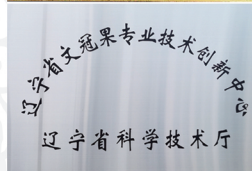 辽宁省文冠果专业技术创新中心
辽宁省科学技术厅